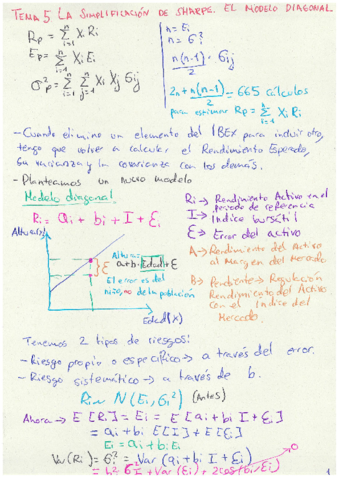 TEMA 5. LA SIMPLIFICACIÓN DE SHARPE. EL MODELO DIAGONAL
Rp = Σ Xi Ri
Ep = Σ Xi Ei
σ²p = Σ Σ Xi Xj σij
n = Ei
n = σ²i
n(n-1)/2 = σij
2n + n(n-1)/2 = 665 cálculos
para estimar Rp = Σ Xi Ri
- Cuando elimino un elemento del IBEX para incluir otro,
tengo que volver a calcular el Rendimiento Esperado,
su varianza y la covarianza con los demás.
- Planteamos un nuevo modelo
Modelo diagonal
Ri = ai + bi + I + Ei
Ri → Rendimiento Activo en el
periodo de referencia
I → Indice bursátil
E → Error del activo
A → Rendimiento del Activo
al Margen del Mercado
B → Pendiente → Regulación
Rendimiento del Activo
con el Indice del
Mercado.
Altura(Y)
Altura:
a+b·Edad+E
E
El error es del
de la población
Edad(X)
Tenemos 2 tipos de riesgos:
- Riesgo propio o específico → a través del error.
- Riesgo sistemático → a través de b.
Ri ~ N(Ei, σi²) (Antes)
Ahora → E[Ri] = Ei = E[ai + bi I + Ei]
= ai + bi E[I] + E[Ei]
Ei = ai + bi Ei
Var(Ri) = σ²i = Var(ai + bi I + Ei)
0
1